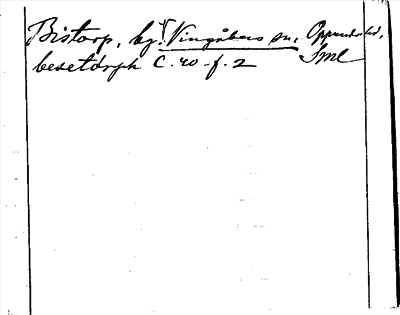 Bistorp, by, Vingåkers sn, Oppunda hd,
besetdrph C. 40 f. 2 Sml